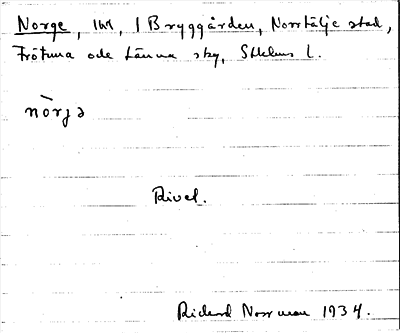 Norge, lht, i Bryggården, Norrtälje stad,
Frötuna och Länna skg, Sthlms l.
nòrjə
Rivet.
Rickard Norrman 1934.